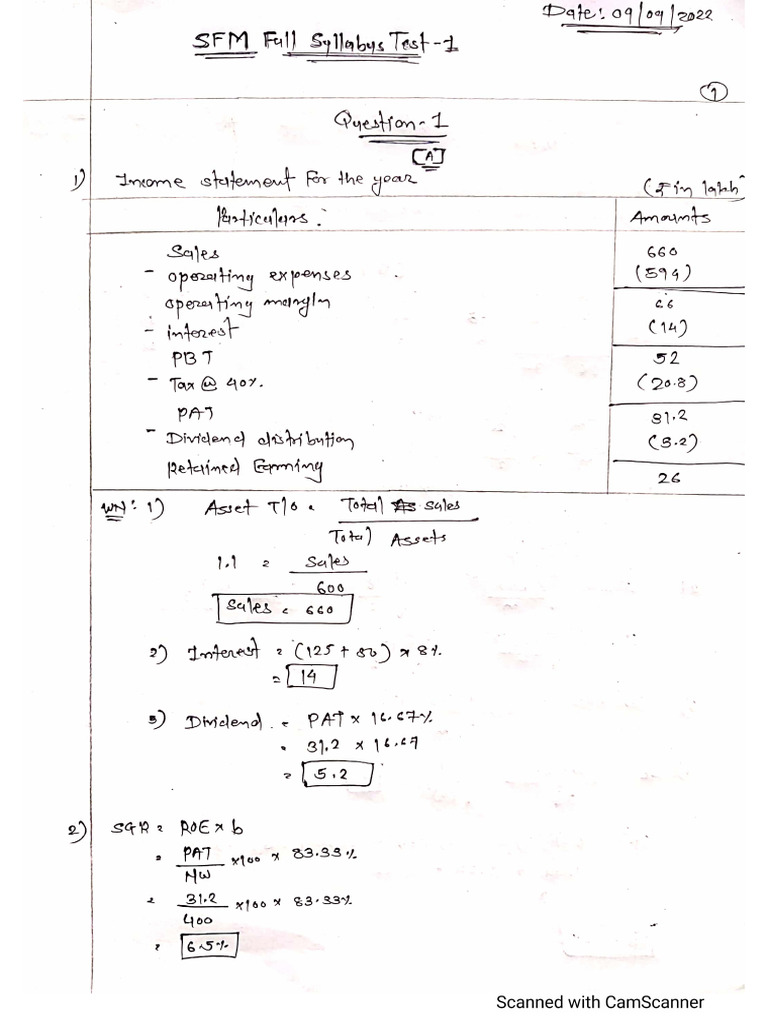 Date: 09/09/2022
SFM Full Syllabus Test-1
1
Question-1
[A]
1) Income statement for the year (₹ in lakh)
Particulars: Amounts
Sales 660
- operating expenses (594)
operating margin 66
- interest (14)
PBT 52
- Tax @ 40%. (20.8)
PAT 31.2
- Dividend distribution (5.2)
Retained Earning 26
WN: 1) Asset T/o = Total sales
Total Assets
1.1 = Sales
600
Sales = 660
2) Interest = (125 + 50) × 8%
= 14
3) Dividend = PAT × 16.67%
= 31.2 × 16.67
= 5.2
2) SGR = ROE × b
= PAT ×100 × 83.33%
NW
= 31.2 ×100 × 83.33%
400
= 6.5%
Scanned with CamScanner